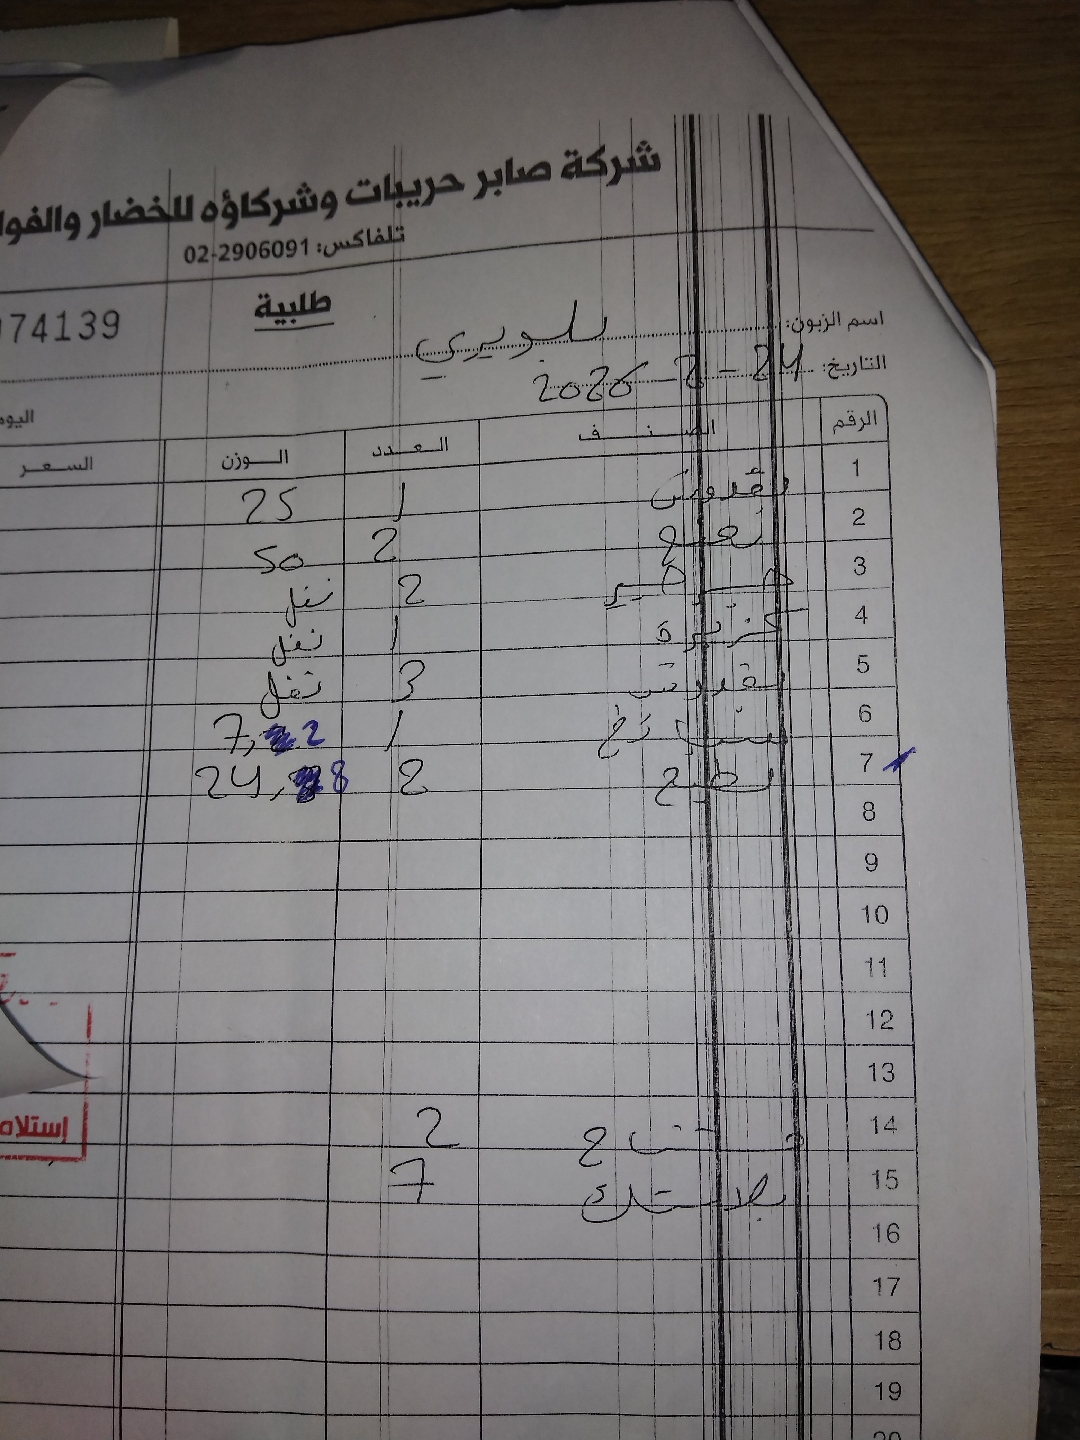 شركة صابر حريبات وشركاؤه للخضار والفوا
تلفاكس: 02-2906091
طلبية
74139
اسم الزبون:
التاريخ: 24-2-2026
اليوم
الرقم الصنف العدد الوزن السعر
1 بقدونس 1 25
2 نعنع 2 50
3 2 نفل
4 كزبرة 1 نفل
5 بقدونس 3 نفل
6 سبانخ 1 7,2
7 2 24,8
8
9
10
11
12
13
14 2
15 بلاستك 7
16
17
18
19
20
إستلام